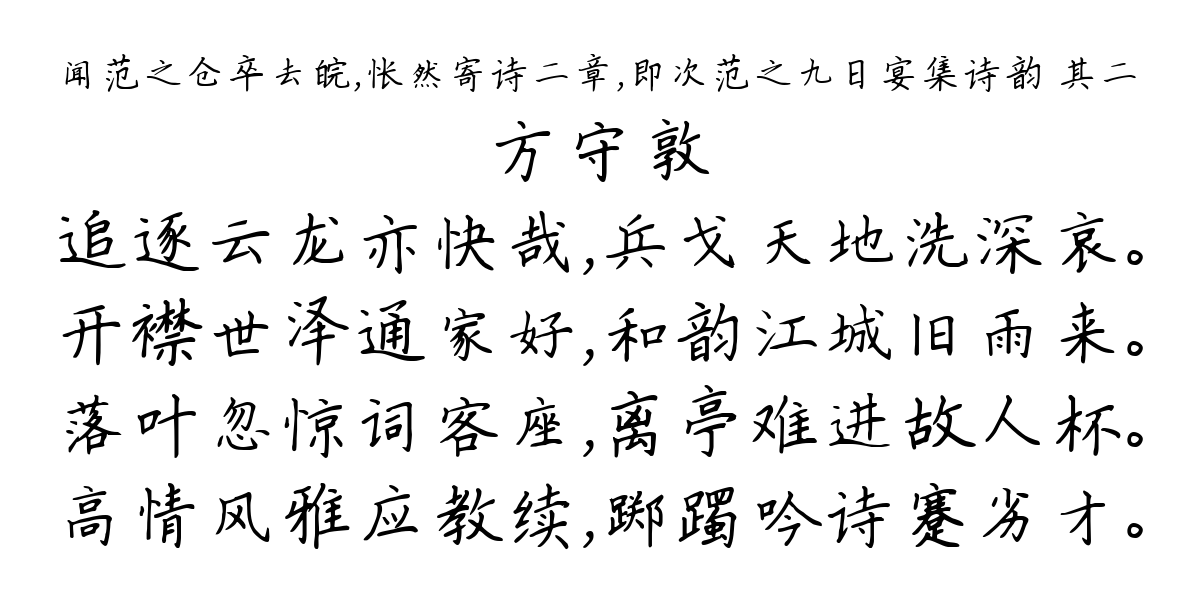 闻范之仓卒去皖,怅然寄诗二章,即次范之九日宴集诗韵 其二
方守敦
追逐云龙亦快哉,兵戈天地洗深哀。
开襟世泽通家好,和韵江城旧雨来。
落叶忽惊词客座,离亭难进故人杯。
高情风雅应教续,踯躅吟诗蹇劣才。